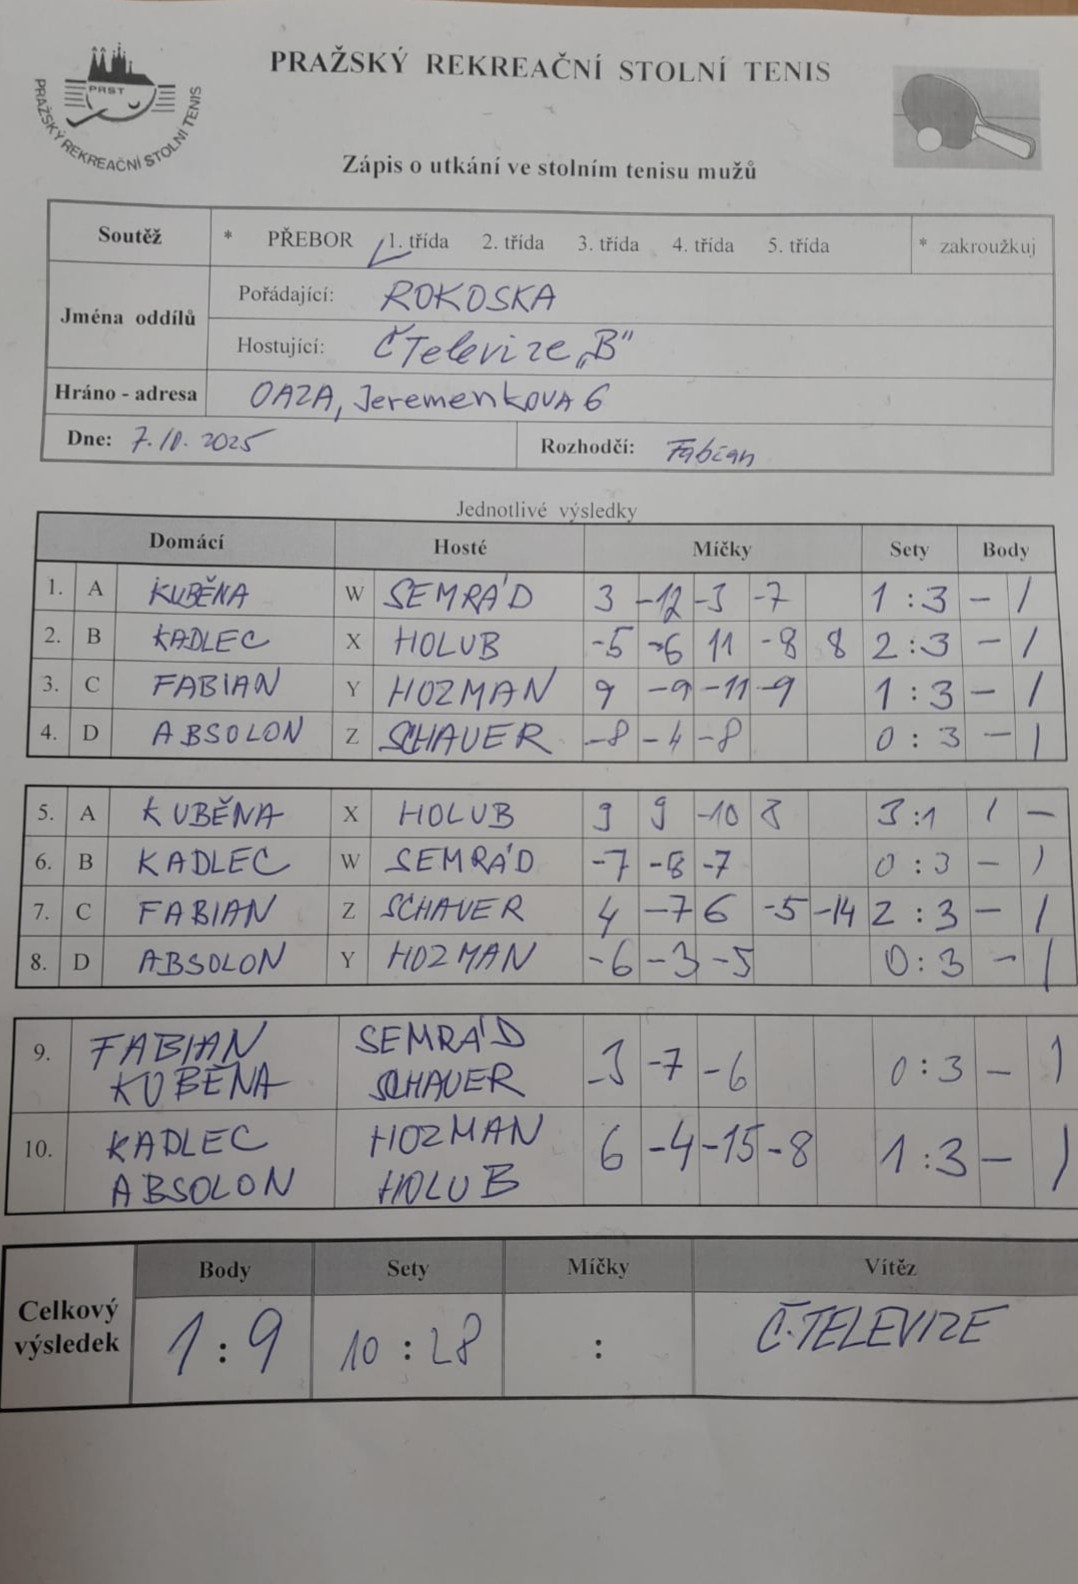 PRAŽSKÝ REKREAČNÍ STOLNÍ TENIS
PRST
PRAŽSKÝ REKREAČNÍ STOLNÍ TENIS
Zápis o utkání ve stolním tenisu mužů
Soutěž * PŘEBOR 1. třída 2. třída 3. třída 4. třída 5. třída * zakroužkuj
Jména oddílů
Pořádající: ROKOSKA
Hostující: ČTelevize „B"
Hráno - adresa OAZA, JeremenkOVA 6
Dne: 7.10. 2025 Rozhodčí: Fabian
Jednotlivé výsledky
Domácí Hosté Míčky Sety Body
1. A KUBĚNA W SEMRÁD 3 -12 -3 -7 1 : 3 - 1
2. B KADLEC X HOLUB -5 -6 11 -8 8 2 : 3 - 1
3. C FABIAN Y HOZMAN 9 -9 -11 -9 1 : 3 - 1
4. D ABSOLON Z SCHAUER -8 -4 -8 0 : 3 - 1
5. A KUBĚNA X HOLUB 9 9 -10 8 3 : 1 1 -
6. B KADLEC W SEMRÁD -7 -8 -7 0 : 3 - 1
7. C FABIAN Z SCHAUER 4 -7 6 -5 -14 2 : 3 - 1
8. D ABSOLON Y HOZMAN -6 -3 -5 0 : 3 - 1
9. FABIAN SEMRÁD -3 -7 -6 0 : 3 - 1
KUBĚNA SCHAUER
10. KADLEC HOZMAN 6 -4 -15 -8 1 : 3 - 1
ABSOLON HOLUB
Body Sety Míčky Vítěz
Celkový výsledek 1 : 9 10 : 28 : Č.TELEVIZE